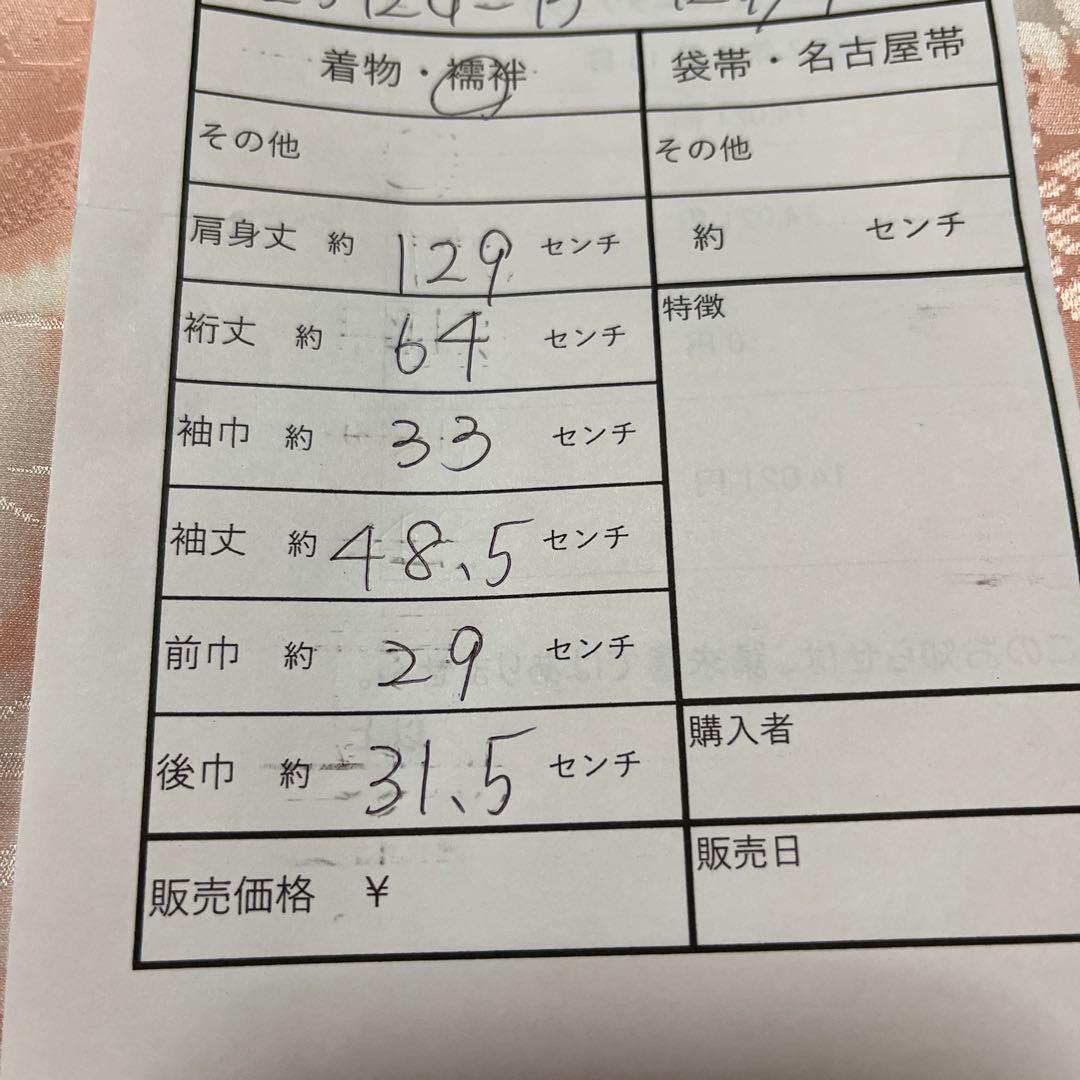 着物・襦袢
袋帯・名古屋帯
その他
その他
肩身丈 約 129 センチ
約 センチ
裄丈 約 64 センチ
特徴
袖巾 約 33 センチ
袖丈 約 48.5 センチ
前巾 約 29 センチ
後巾 約 31.5 センチ
購入者
販売価格 ¥
販売日